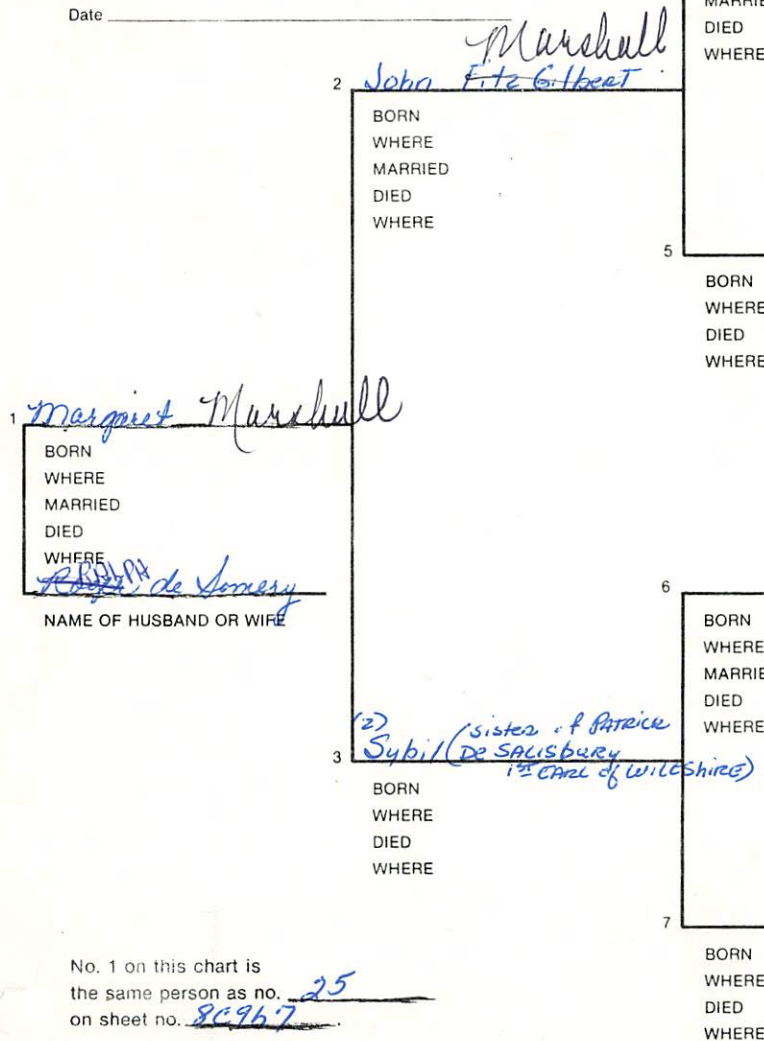 Date
MARRIED
DIED
WHERE
Marshall
2 John Fitz Gilbert
BORN
WHERE
MARRIED
DIED
WHERE
5
BORN
WHERE
DIED
WHERE
1 Margaret Marshall
BORN
WHERE
MARRIED
DIED
WHERE
RALPH
Roger de Somery
NAME OF HUSBAND OR WIFE
6
BORN
WHERE
MARRIE
DIED
WHERE
(2)
3 Sybil (sister of PATRICK
DE SALISbURY
1st EARL of WILTShIRE)
BORN
WHERE
DIED
WHERE
7
BORN
WHERE
DIED
WHERE
No. 1 on this chart is
the same person as no. 25
on sheet no.